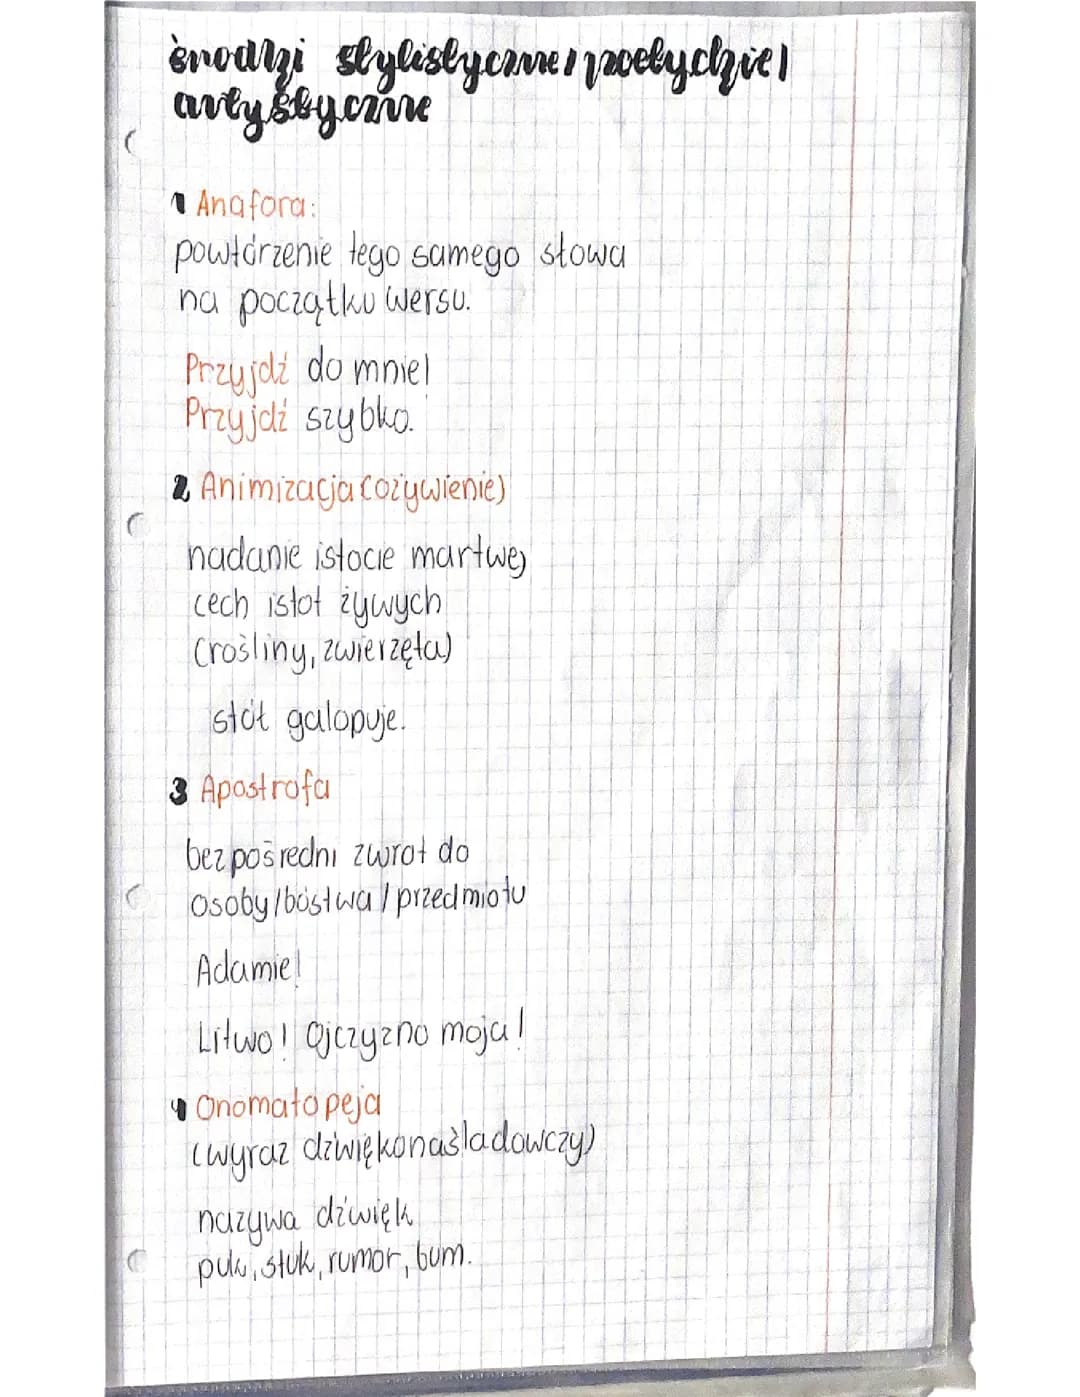 środki stylistyczne / poetyckie /
artystyczne
1 Anafora:
powtórzenie tego samego słowa
na początku wersu.
Przyjdź do mnie!
Przyjdź szybko.
2 Animizacja (ożywienie)
nadanie istocie martwej
cech istot żywych
(rośliny, zwierzęta)
stół galopuje.
3 Apostrofa
bezpośredni zwrot do
osoby/bóstwa / przedmiotu
Adamie!
Litwo! Ojczyzno moja!
4 Onomatopeja
(wyraz dźwiękonaśladowczy)
nazywa dźwięk
puk, stuk, rumor, bum.